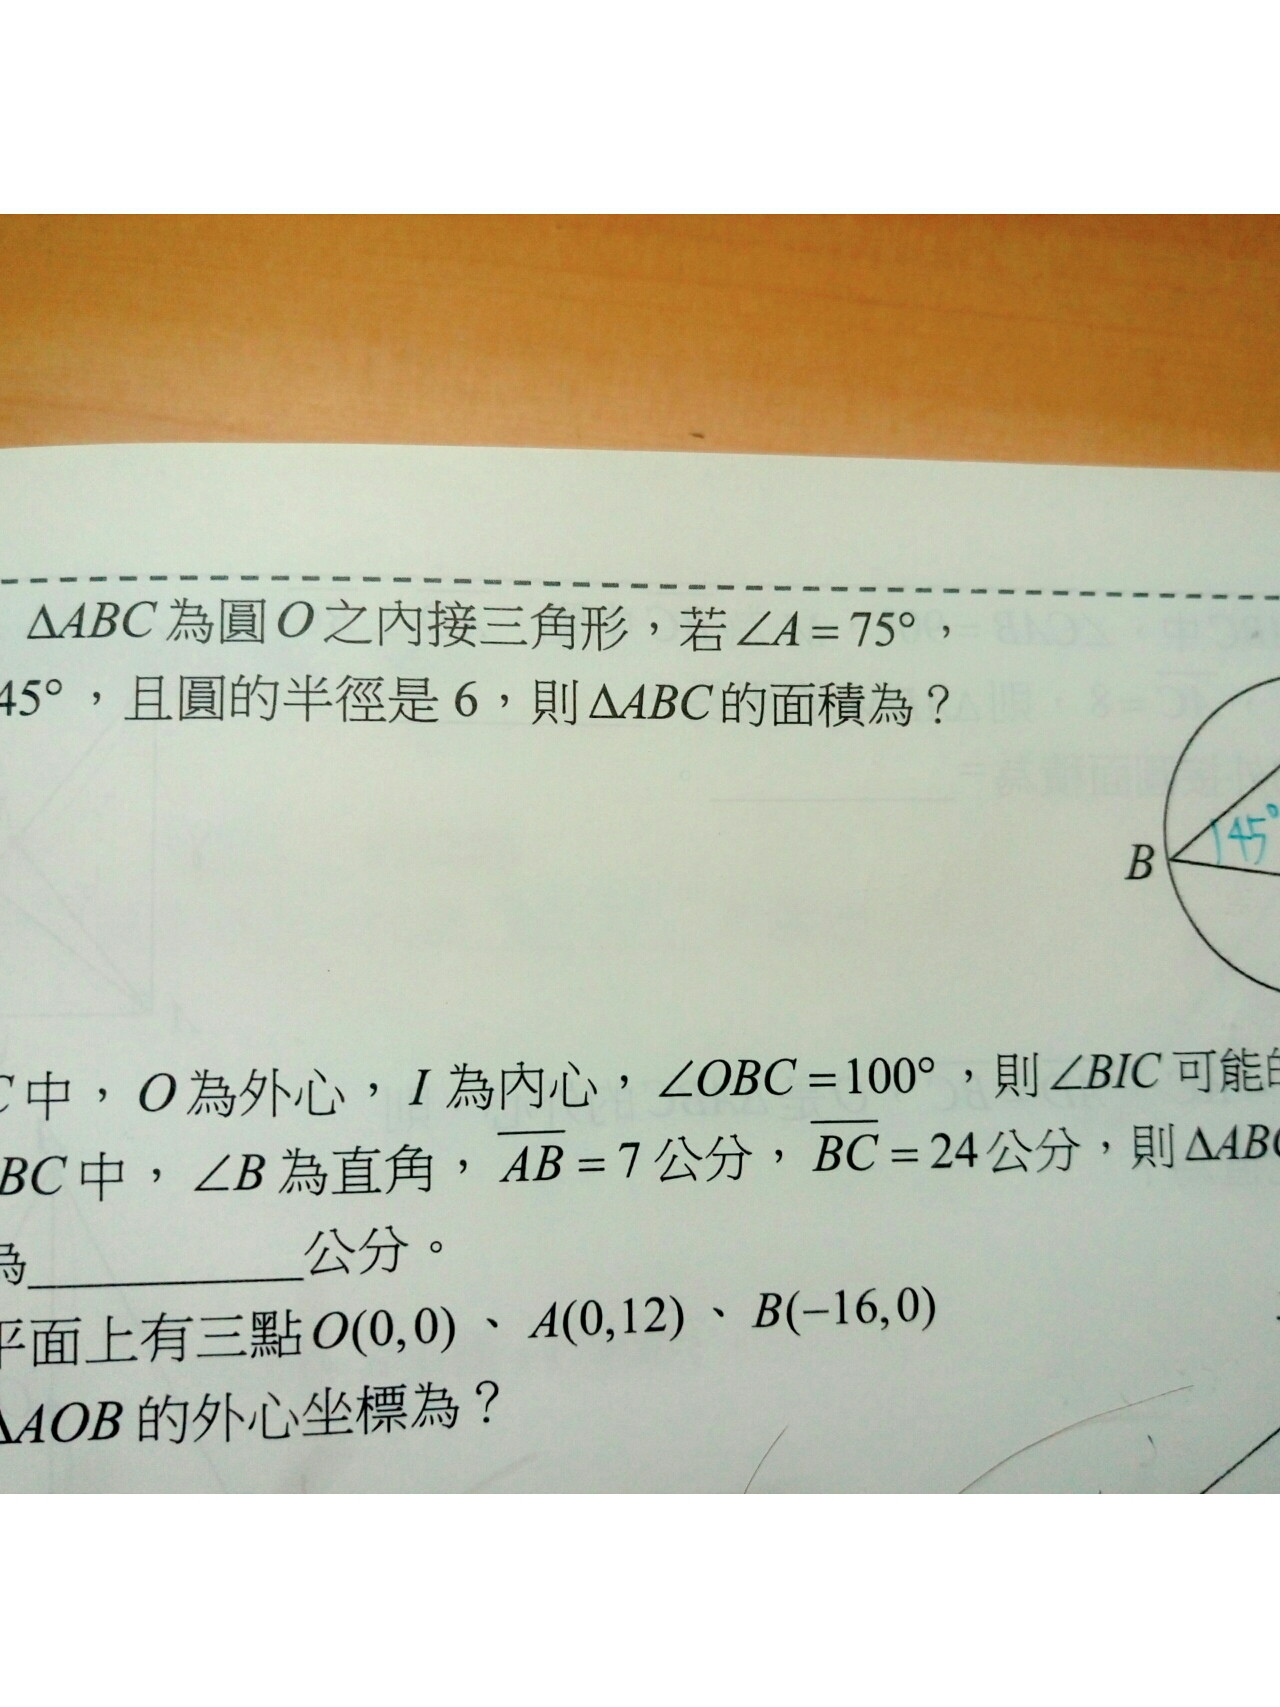 ΔABC 為圓 O 之內接三角形，若∠A = 75°，
45°，且圓的半徑是 6，則ΔABC 的面積為？
B
45°
C 中，O 為外心，I 為內心，∠OBC = 100°，則∠BIC 可能的
BC 中，∠B 為直角，AB = 7 公分，BC = 24 公分，則ΔABC
為__________公分。
平面上有三點 O(0,0)、A(0,12)、B(−16,0)
ΔAOB 的外心坐標為？